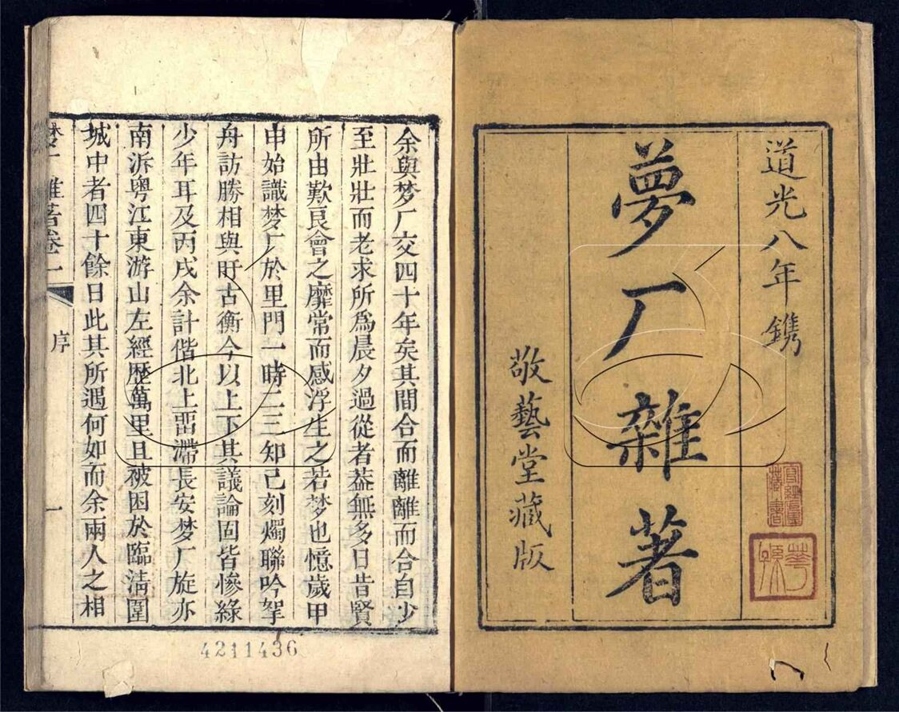 道光八年鐫
夢厂雜著
敬藝堂藏版
余與梦厂交四十年矣其間合而離離而合自少
至壯壯而老求所爲晨夕過從者葢無多日昔賢
所由歎良會之靡常而感浮生之若梦也憶歲甲
申始識梦厂於里門一時二三知己刻燭聯吟拏
舟訪勝相與盱古衡今以上下其議論固皆慘綠
少年耳及丙戌余計偕北上畱滯長安梦厂旋亦
南泝粤江東游山左經歴萬里且被困於臨清圍
城中者四十餘日此其所遇何如而余兩人之相
梦厂雜著卷一
序
一
4241436